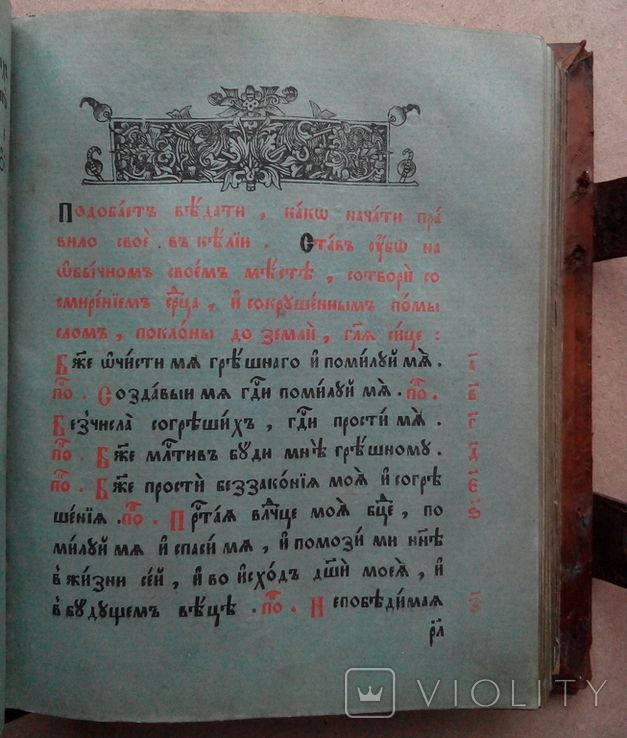 Подобаетъ вѣ́дати, ка́кѡ нача́ти пра
вило своѐ въ ке́лїи. Ста́въ ᲂу҆́бѡ на
ѡ҆бы́чномъ свое́мъ мѣ́стѣ, сотворѝ со
смире́нїемъ се́рⷣца, и҆ сокруше́ннымъ по́мы
сломъ, покло́ны до землѝ, гл҃я си́це:
Бж҃е ѡ҆чи́сти мѧ̀ грѣ́шнаго и҆ поми́луй мѧ̀.
по. Созда́выи мѧ̀ гдⷭ҇и поми́луй мѧ̀. по. в҃
Без̾числа̀ согрѣши́хъ, гдⷭ҇и прости́ мѧ̀. г҃
по. Бж҃е млⷭ҇тивъ бу́ди мнѣ̀ грѣ́шному. д҃
по. Бж҃е простѝ беззако́нїя моѧ̀ и҆ согрѣ е҃
ше́нїя. по. Прⷭ҇таѧ влⷣчце моѧ̀ бцⷣе, по ѕ҃
ми́луй мѧ̀ и҆ спаси́ мѧ̀, и҆ помози́ ми нн҃ѣ
в жи́зни се́й, и҆ во и҆схо́дъ дш҃и моеѧ̀, и҆
в бу́дущемъ вѣ́цѣ. по. Непобѣди́мая з҃
рл
VIOLITY